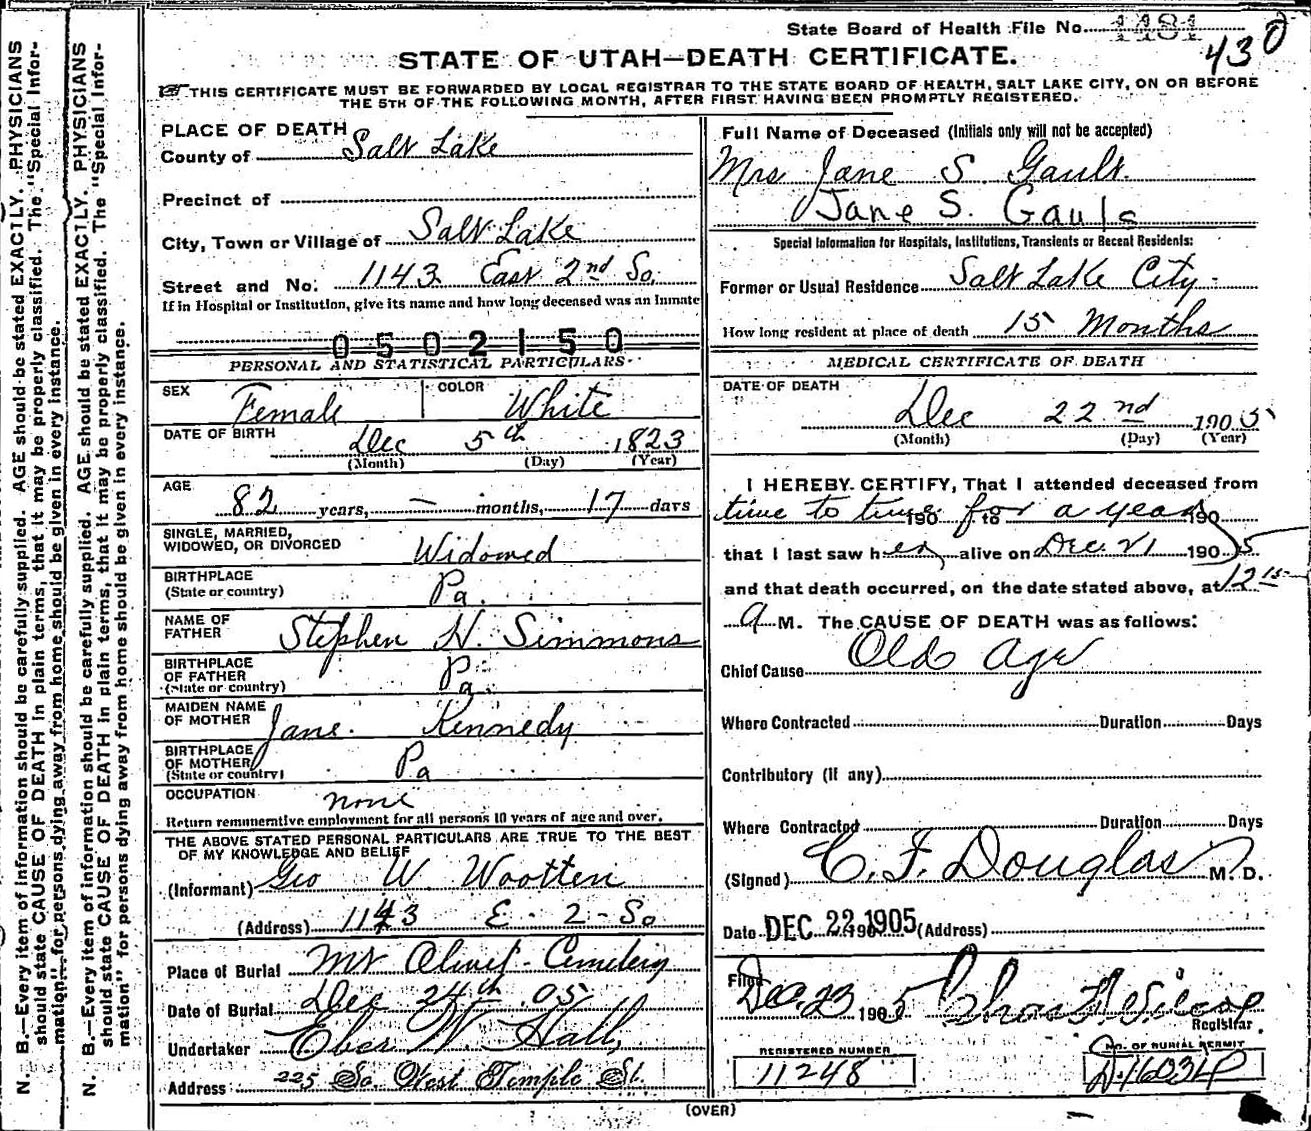 State Board of Health File No. 1181
430
STATE OF UTAH—DEATH CERTIFICATE.
THIS CERTIFICATE MUST BE FORWARDED BY LOCAL REGISTRAR TO THE STATE BOARD OF HEALTH, SALT LAKE CITY, ON OR BEFORE
THE 5TH OF THE FOLLOWING MONTH, AFTER FIRST HAVING BEEN PROMPTLY REGISTERED.
N. B.—Every item of information should be carefully supplied. AGE should be stated EXACTLY. PHYSICIANS
should state CAUSE OF DEATH in plain terms, that it may be properly classified. The "Special Infor-
mation" for persons dying away from home should be given in every instance.
N. B.—Every item of information should be carefully supplied. AGE should be stated EXACTLY. PHYSICIANS
should state CAUSE OF DEATH in plain terms, that it may be properly classified. The "Special Infor-
mation" for persons dying away from home should be given in every instance.
PLACE OF DEATH
County of Salt Lake
Precinct of
City, Town or Village of Salt Lake
Street and No. 1143 East 2nd So.
If in Hospital or Institution, give its name and how long deceased was an Inmate
0502150
PERSONAL AND STATISTICAL PARTICULARS
SEX Female COLOR White
DATE OF BIRTH Dec 5th 1823
(Month) (Day) (Year)
AGE 82 years, — months, 17 days
SINGLE, MARRIED,
WIDOWED, OR DIVORCED Widowed
BIRTHPLACE
(State or country) Pa.
NAME OF
FATHER Stephen H. Simmons
BIRTHPLACE
OF FATHER
(State or country) Pa.
MAIDEN NAME
OF MOTHER Jane Kennedy
BIRTHPLACE
OF MOTHER
(State or country) Pa
OCCUPATION none
Return remunerative employment for all persons 10 years of age and over.
THE ABOVE STATED PERSONAL PARTICULARS ARE TRUE TO THE BEST
OF MY KNOWLEDGE AND BELIEF
(Informant) Geo W. Wootten
(Address) 1143 E. 2-So
Place of Burial Mt Olivet Cemetery
Date of Burial Dec 24th 05
Undertaker Eber W Hall,
Address 225 So West Temple St.
Full Name of Deceased (Initials only will not be accepted)
Mrs Jane S Gault.
Jane S. Gault
Special Information for Hospitals, Institutions, Transients or Recent Residents:
Former or Usual Residence Salt Lake City
How long resident at place of death 15 Months
MEDICAL CERTIFICATE OF DEATH
DATE OF DEATH
Dec 22nd 1905
(Month) (Day) (Year)
I HEREBY CERTIFY, That I attended deceased from
time to time 190 for to a year 190
that I last saw her alive on Dec. 21 1905
and that death occurred, on the date stated above, at 12 15
A M. The CAUSE OF DEATH was as follows:
Chief Cause Old Age
Where Contracted Duration Days
Contributory (if any)
Where Contracted Duration Days
(Signed) C. F. Douglas M. D.
Date DEC 22 1905 190 (Address)
Filed Dec. 23 1905
Registrar.
REGISTERED NUMBER
11248
NO. OF BURIAL PERMIT
(OVER)